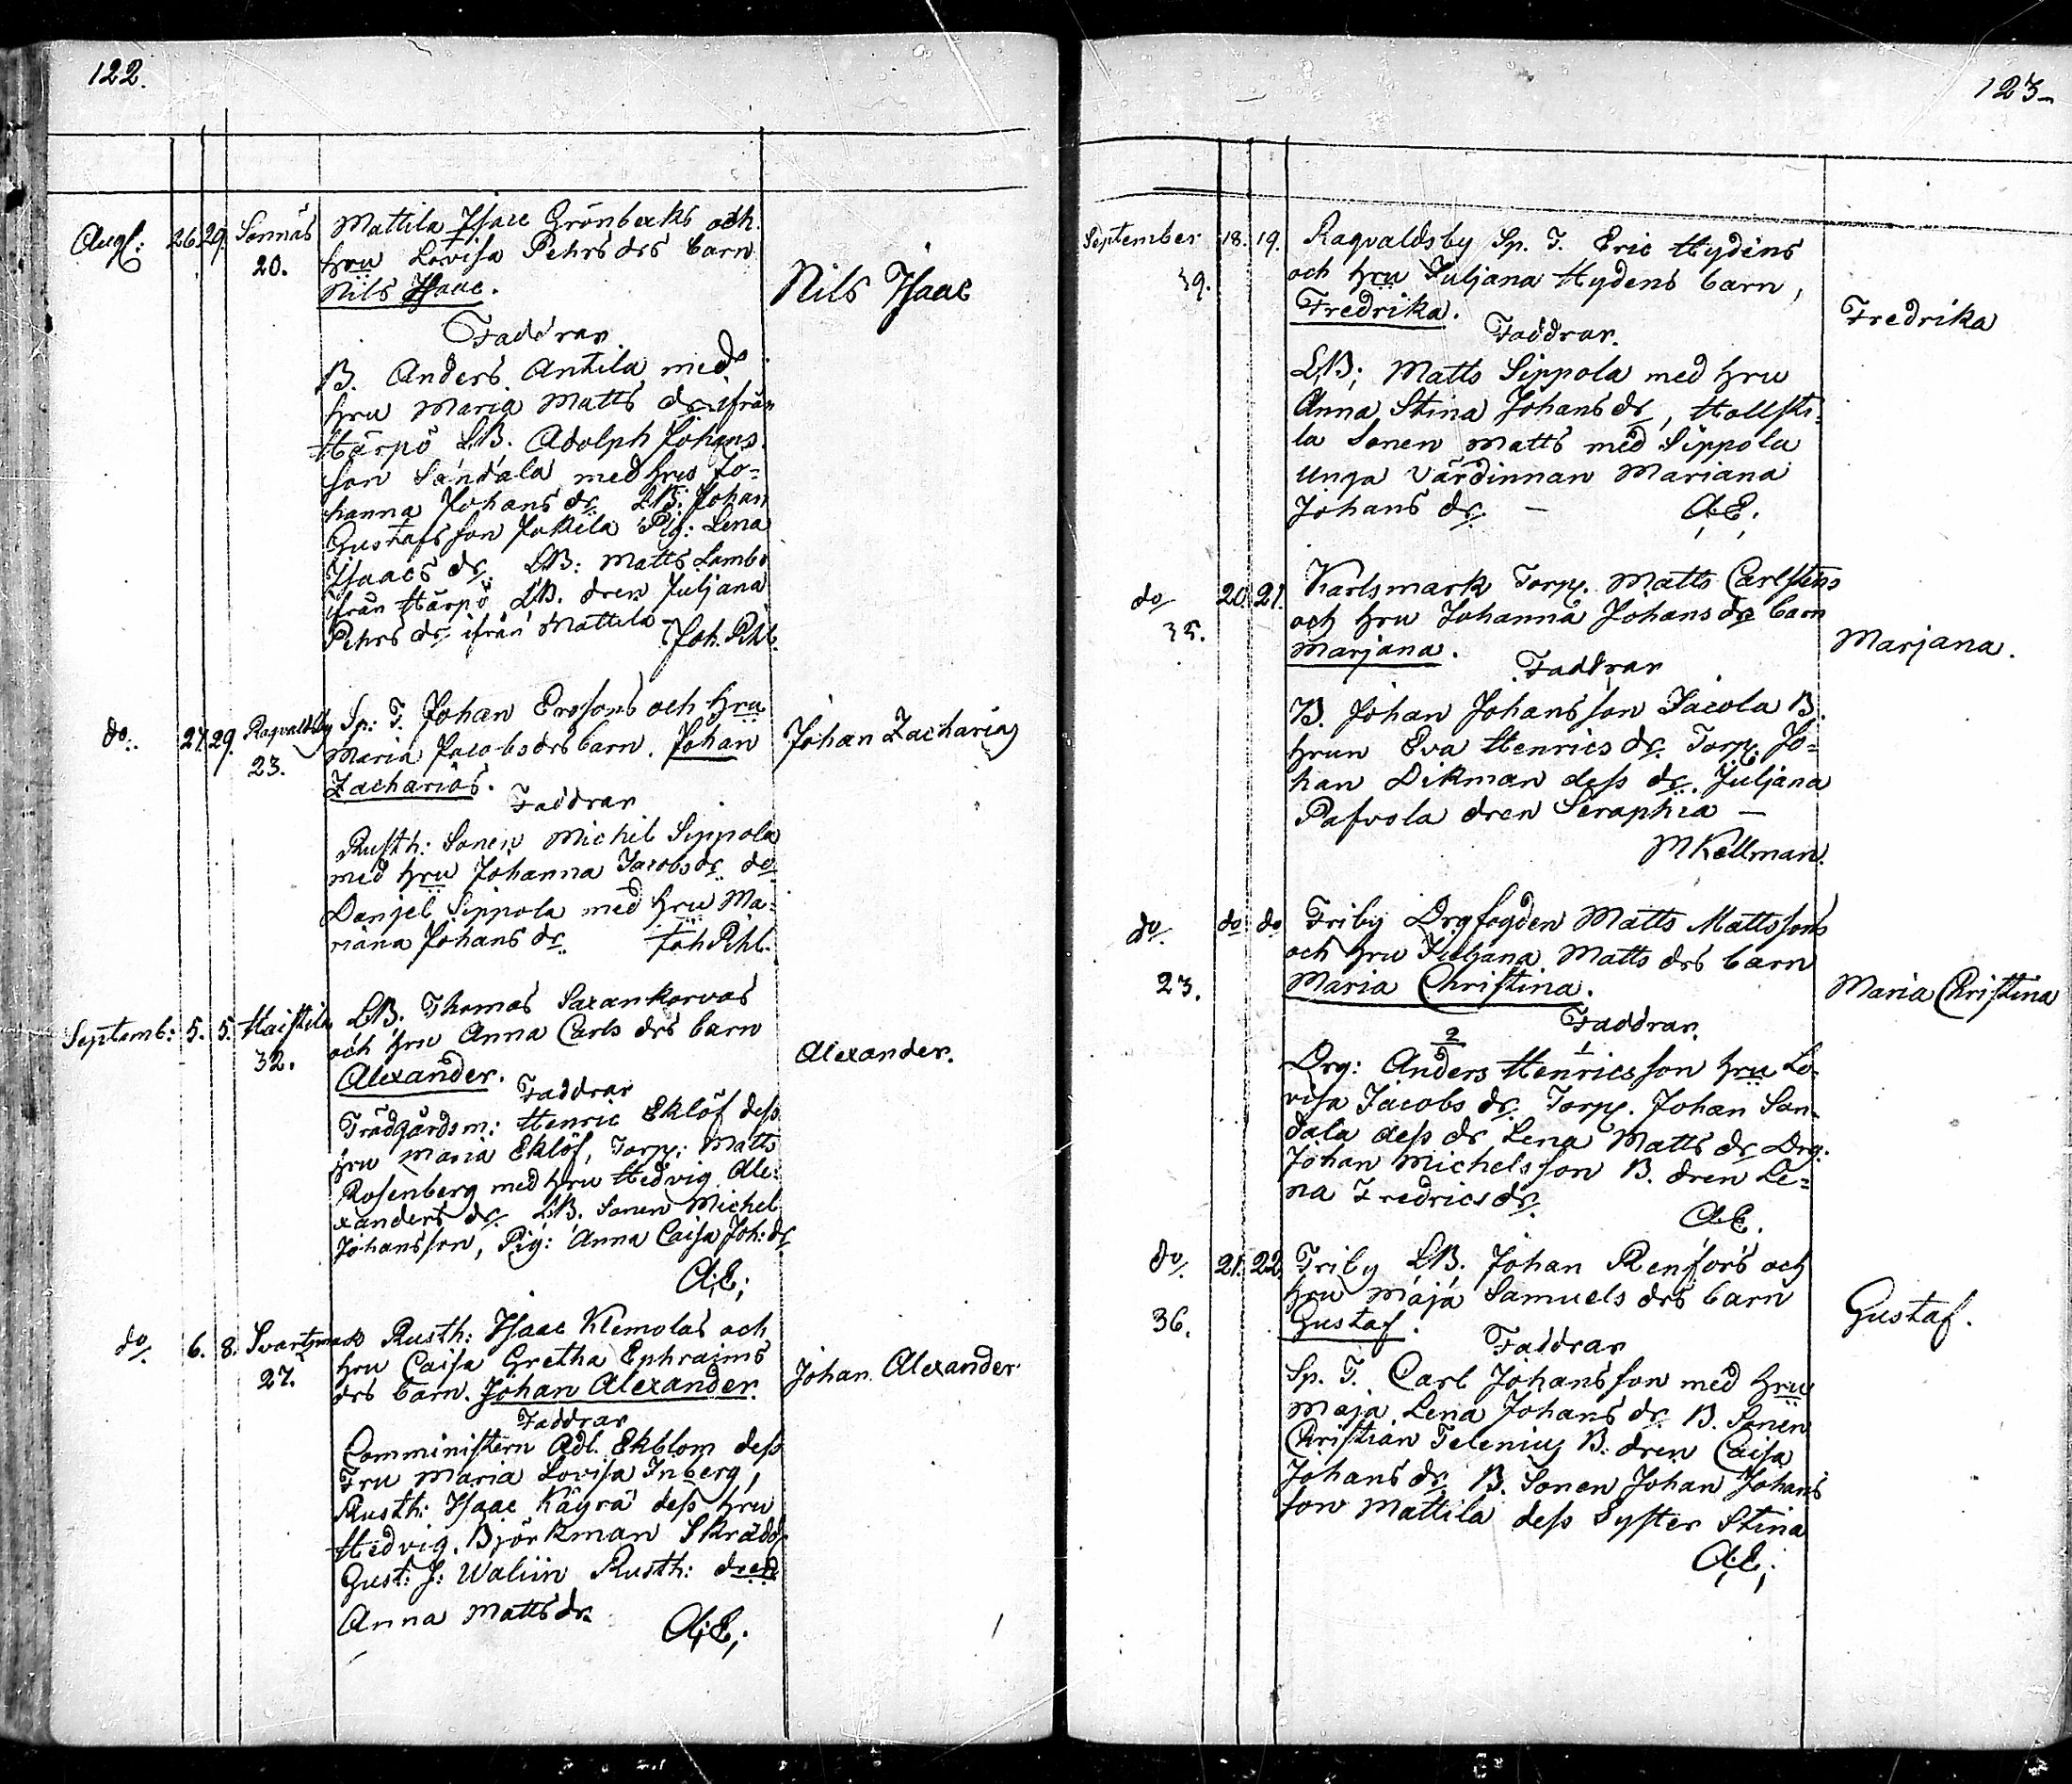 122.
Augs: 26. 29. Sonnäs Mattila Isaac Grönbecks och
20. hru Lovisa Pehrs drs barn
Nils Isaac. Nils Isaac
Faddrar
B. Anders Antila med
hru Maria Matts dr ifrån
Härpö LB. Adolph Johans
son Sandala med hru Jo=
hanna Johans dr LB: Johan
Gustafs son Jokila Pig: Lena
Isaacs dr. LB: Matts Lambo
ifrån Härpö LB. dren Juljana
Pehrs dr ifrån Mattila Joh. Pihl.
do. 27. 29. Ragvaldsby Sp: T. Johan Ersons och hru
23. Maria Jacobs drs barn. Johan Johan Zacharias
Zacharias.
Faddrar
Rusth: Sonen Michel Sippola
med hru Johanna Jacobs dr do
Danjel Sippola med hru Ma=
riana Johans dr. Joh Pihl.
Septemb: 5. 5. Haistila LB. Thomas Saxankorvas
32. och hru Anna Carls drs barn
Alexander. Alexander.
Faddrar
Trädgårdsm: Henric Eklöf dess
hru Maria Eklöf, Torp: Matts
Rosenberg med hru Hedvig Ale=
xanders dr. LB. Sonen Michel
Johansson, Pig: Anna Caisa Joh: dr
A:E;
do. 6. 8. Svartsmark Rusth: Isaac Klemolas och
27. hru Caisa Gretha Ephraims
drs barn. Johan Alexander. Johan Alexander
Faddrar
Comministern Adl. Ekblom dess
Fru Maria Lovisa Inberg,
Rusth: Isaac Käyrä dess hru
Hedvig Björkman Skrädd.
Gust: J: Waliin Rusth: dren
Anna Matts dr. A;E;
123
September 18. 19. Ragvaldsby Sp. T. Eric Hydens
39. och hru Juljana Hydens barn,
Fredrika. Fredrika
Faddrar.
LB; Matts Sippola med hru
Anna Stina Johans dr, Hallsti=
la Sonen Matts med Sippola
unga värdinnan Mariana
Johans dr. — A:E.
do. 20. 21. Karlsmark Torp. Matts Carlstens
35. och hru Johanna Johans drs barn
Marjana. Marjana.
Faddrar
B. Johan Johans son Jacola B.
hrun Eva Henrics dr. Torp. Jo=
han Dikman dess dr. Juljana
Pafvola dren Seraphia —
M Kellman.
do. do do Friby Drgfogden Matts Mattssons
23. och hru Juljana Matts drs barn
Maria Christina. Maria Christina
Faddrar
2 1
Drg: Anders Henrics son hru Lo=
visa Jacobs dr. Torp. Johan San=
dala dess dr Lena Matts dr Drg:
Johan Michelsson B. dren Le=
na Fredrics dr.
A:E.
do. 21. 22. Friby LB. Johan Renfors och
36. hru Maja Samuels drs barn
Gustaf. Gustaf.
Faddrar
Sp. T. Carl Johansson med hru
Maja Lena Johans dr. B. Sonen
Christian Telenius B. dren Caisa
Johans dr B. Sonen Johan Johans
son Mattila dess Syster Stina
A:E;